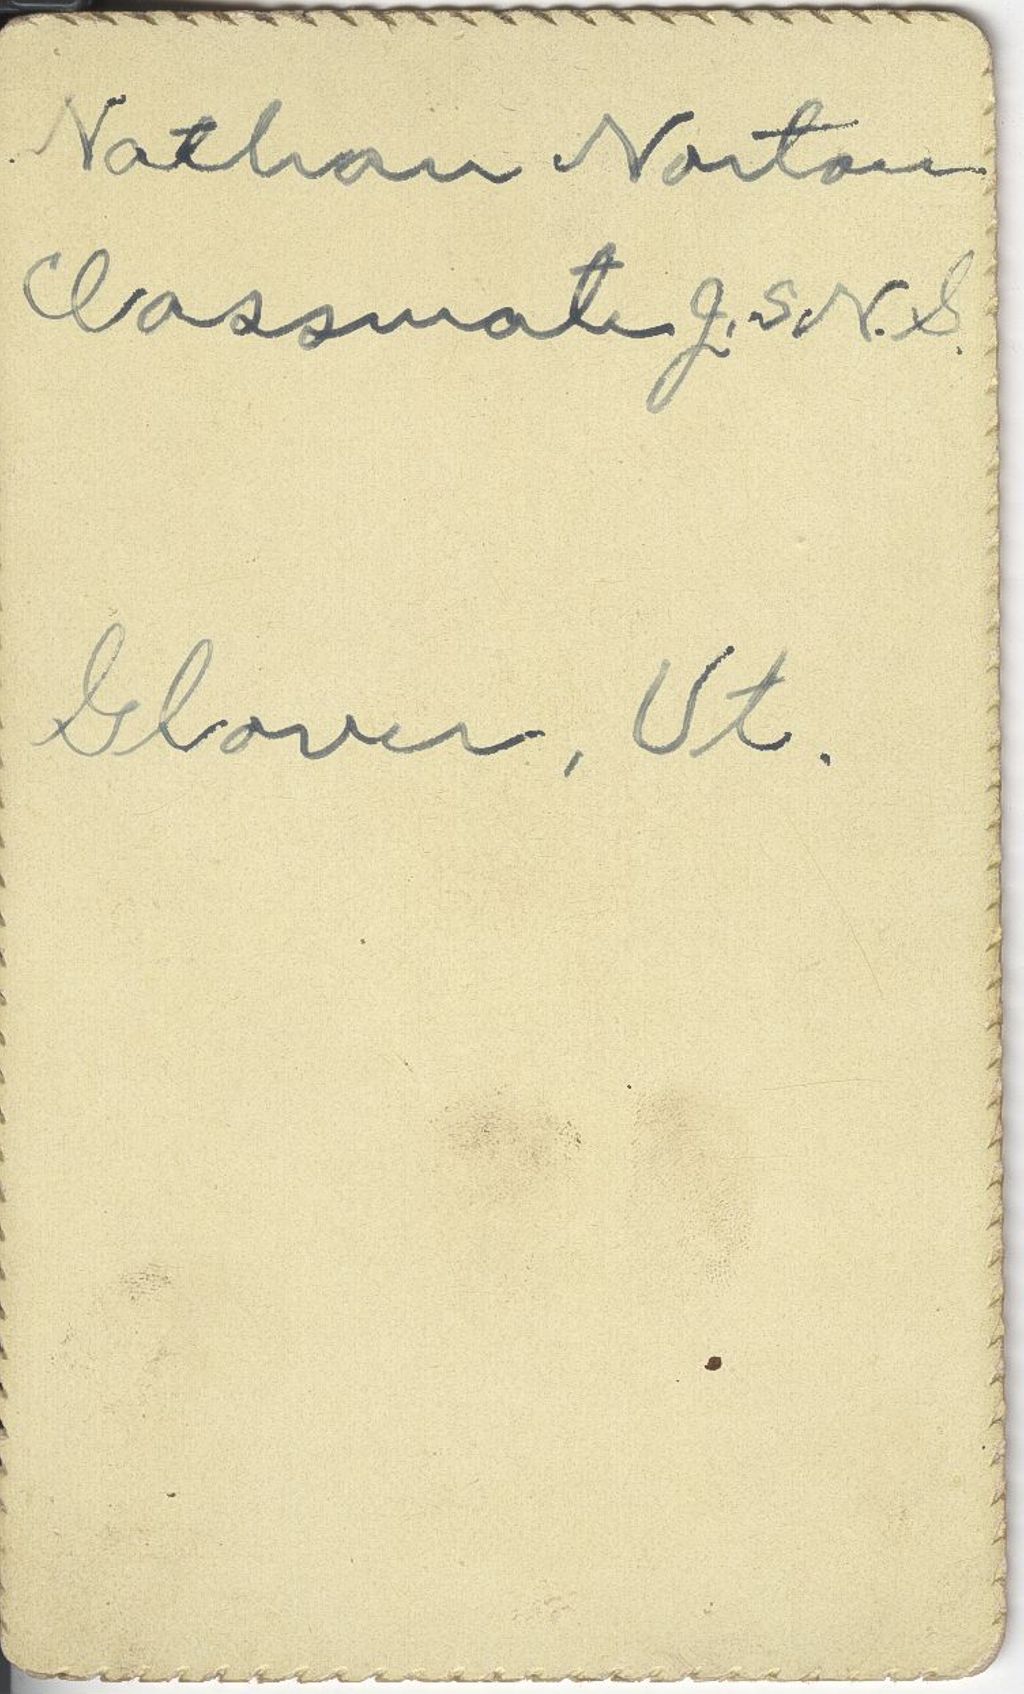 Nathan Norton
Classmate J.S.N.S.
Glover, Vt.